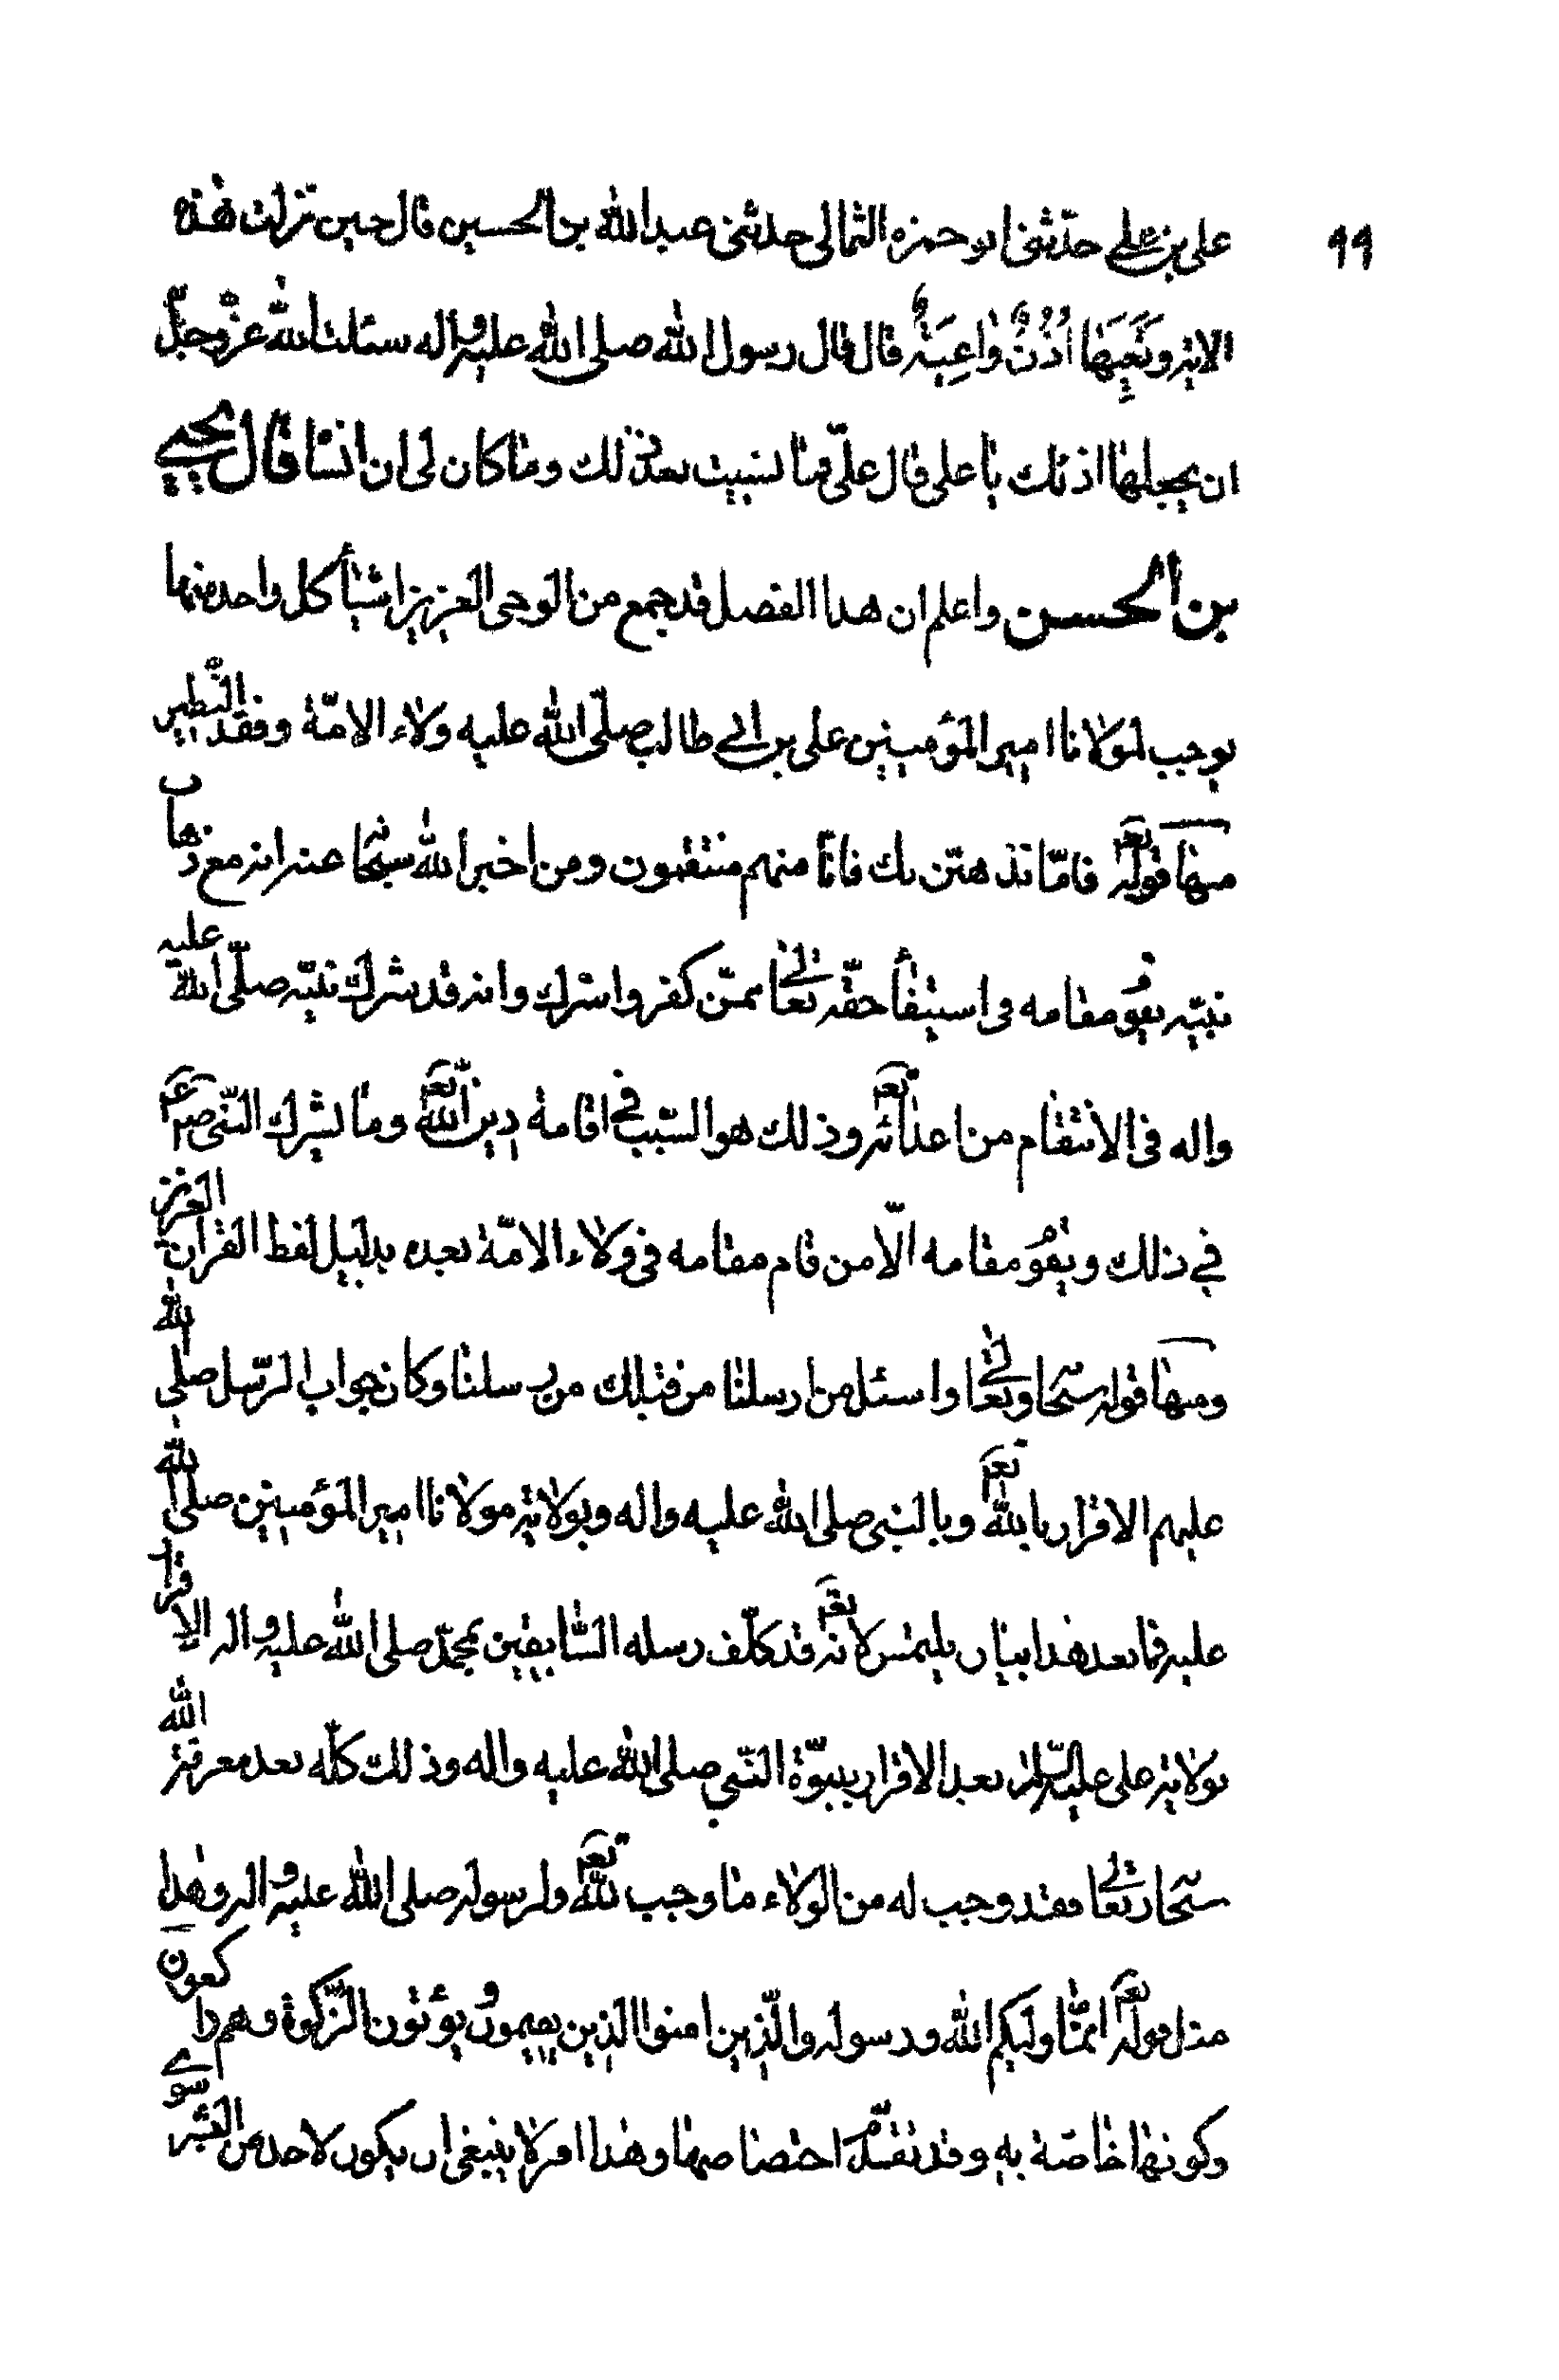 ٩٩
على بن على حدّثنى ابو حمزه الثمالى حدثنى عبد الله بن الحسين قال حين نزلت هذه
الاية وَتَعِيَهٰا اُذُنٌ وٰاعِيَةٌ قال قال رسول الله صلى الله عليه واله سئلت الله عزّ وجلّ
ان يجعلها اذنك يا على قال علىّ فما نسيت بعد ذلك وما كان لى ان انسا قال يحيى
بن الحسن واعلم ان هذا الفصل قد جمع من الوحى العزيز اشيأ كل واحد منها
يوجب لمولانا امير المؤمنين على بن ابى طالب صلّى الله عليه ولاء الامّة وفقد النّظير
منها قوله تعم فامّا نذهبّن بك فانّا منهم منتقمون ومن اخبر الله سبحا عنه انه مع ذهاب
نبيّه يقوم مقامه فى استيفأ حقّه تعالى ممّن كفر واشرك وانه قد شرك نبيّه صلّى الله عليه
واله فى الانتقام من اعدائه تعم وذلك هو السّبب فى اقامة دين الله تعم وما يشرك النّبى صلعم
فى ذلك ويقوم مقامه الّا من قام مقامه فى ولاء الامّة بعده بدليل لفظ القران العزيز
ومنها قوله سبحا وتعالى واسئل من ارسلنا من قبلك من رسلنا وكان جواب الرّسل صلى الله
عليهم الاقرار بالله تعم وبالنبى صلى الله عليه واله وبولاية مولانا امير المؤمنين صلى الله
عليه فما بعد هذا بيان يلتمس لانه تعم قد كلّف رسله السّابقين بمحمّد صلى الله عليه واله الاقرار
بولاية على عليه السّلام بعد الاقرار بنبوّة النّبى صلى الله عليه واله وذلك كلّه بعد معرفة الله
سبحا وتعالى فقد وجب له من الولاء ما وجب لله تعم ولرسوله صلى الله عليه واله وهذا
مثل قوله تعم انمّا وليكم الله ورسوله والّذين امنوا الذين يقيمون ويؤتون الزّكوة وهم راكعون
وكونها خاصّة به وقد تقدّم اختصاصها وهذا امر لا ينبغى ان يكون لاحد من البشر سوى